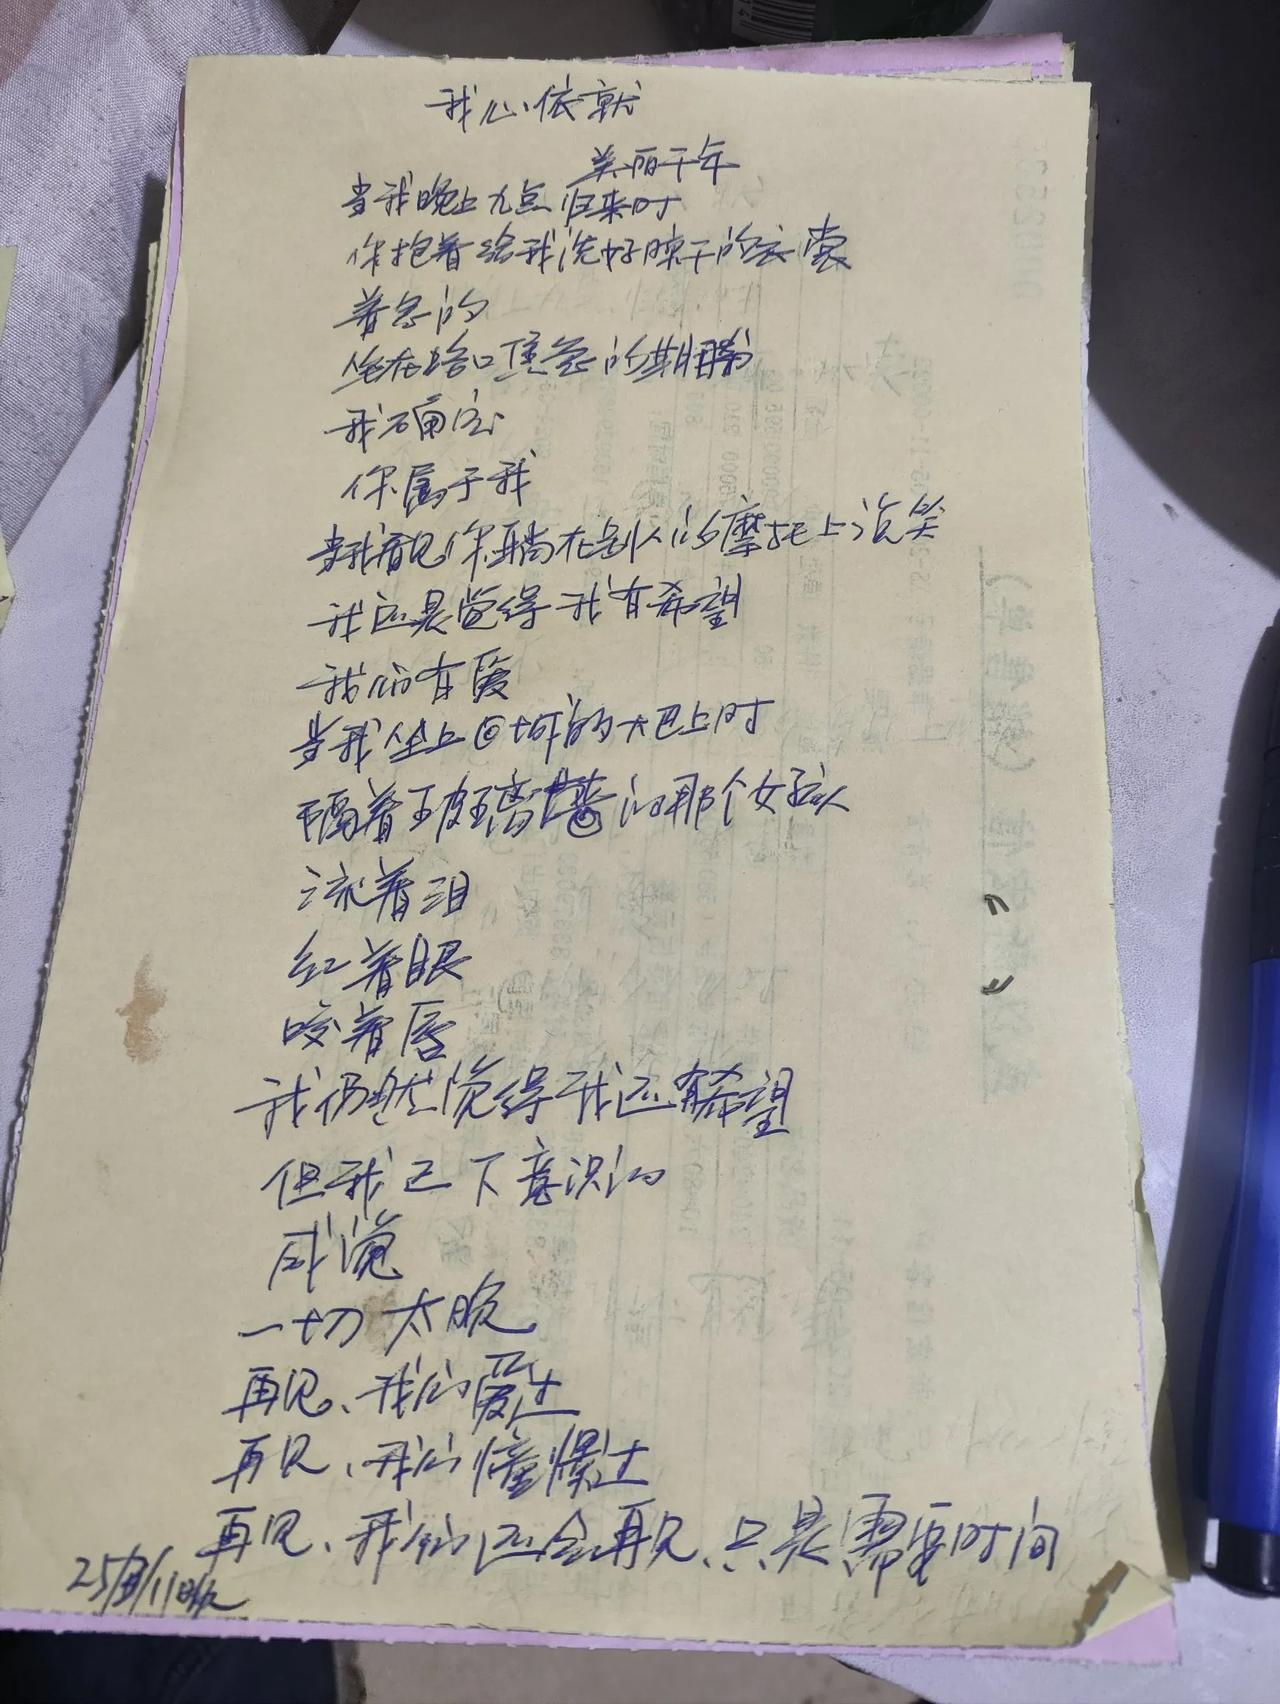 我心依就
美丽千年
当我晚上九点归来时
你抱着给我洗好晾干的衣裳
着急的
坐在路口焦急的期盼
我确定
你属于我
当我看见你躺在别人的摩托上说笑
我还是觉得我有希望
我们有爱
当我坐上回城的大巴上时
隔着玻璃的那个女孩
流着泪
红着眼
咬着唇
我仍然觉得我还有希望
但我已下意识的
感觉
一切太晚
再见、我们爱过
再见、我们憧憬过
再见、我们还会再见、只是需要时间